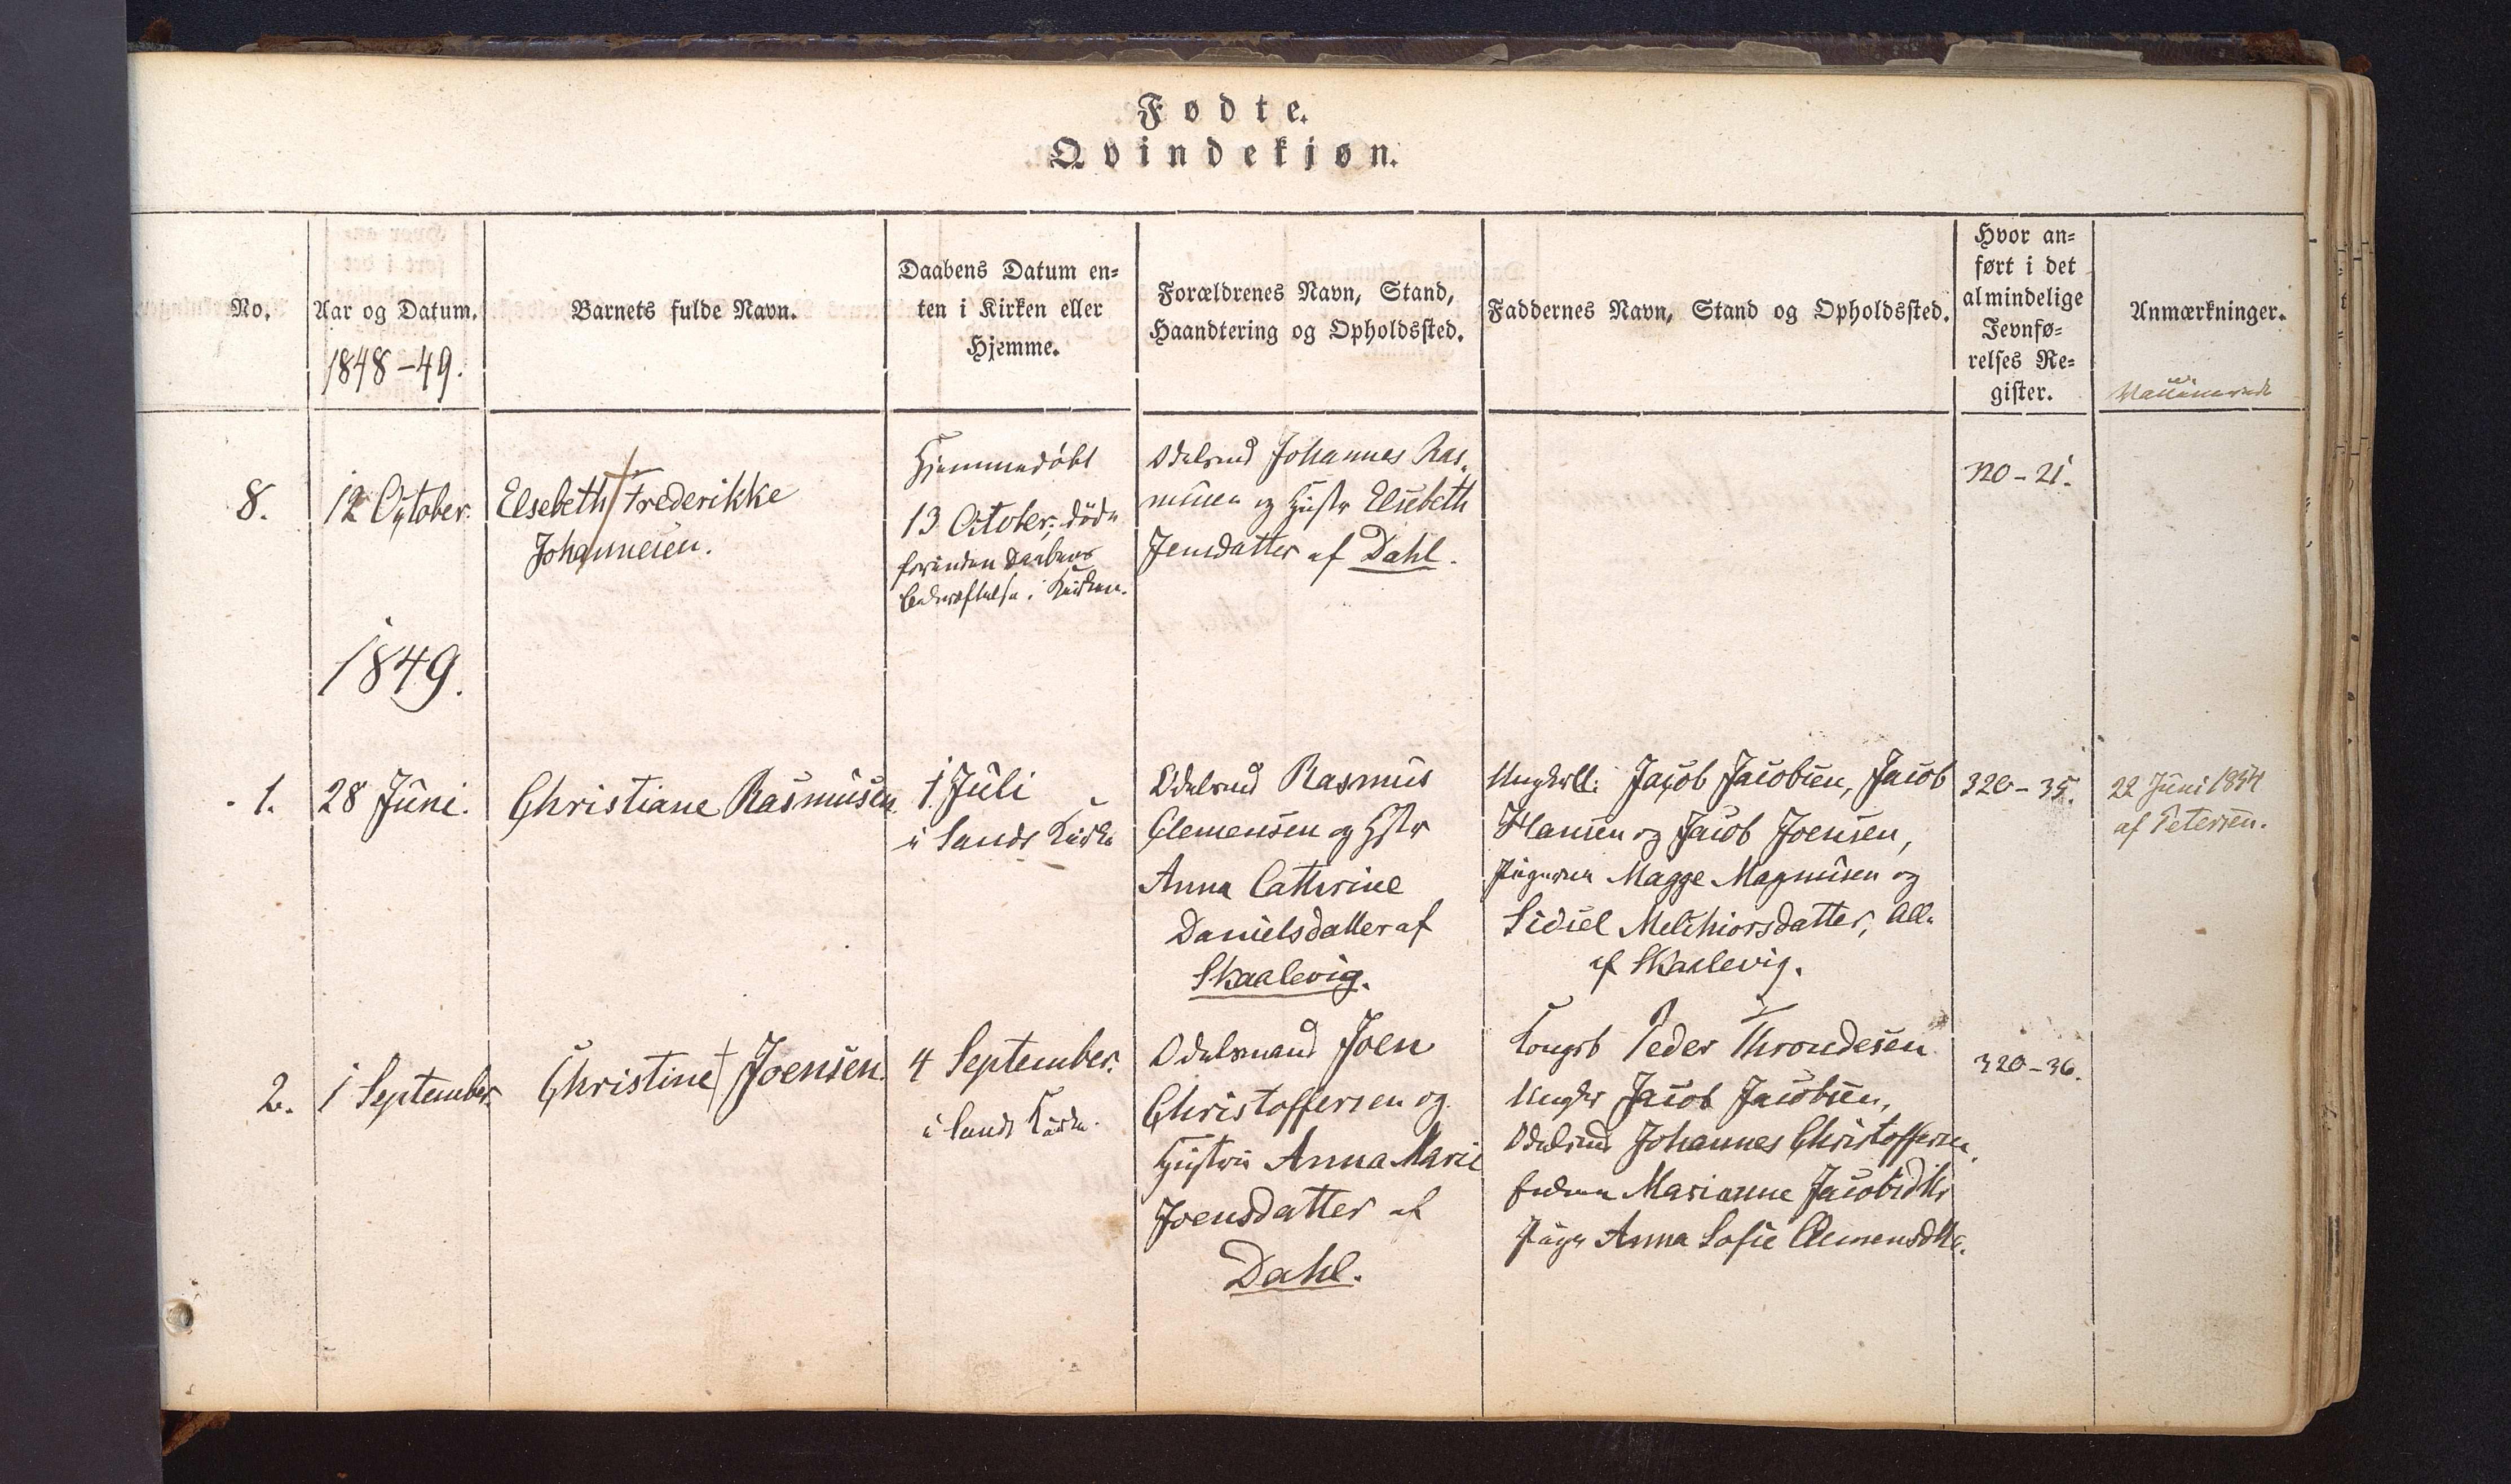 Fødte.
Qvindekjøn.
No.
Aar og Datum.
1848-49.
Barnets fulde Navn.
Daabens Datum en-
ten i Kirken eller
Hjemme.
Forældrenes Navn, Stand,
Haandtering og Opholdssted.
Faddernes Navn, Stand og Opholdssted.
Hvor an-
ført i det
almindelige
Jevnfø-
relses Re-
gister.
Anmærkninger.
Vaccinerede
8.
12 October.
Elsebeth Frederikke
Johannesen.
Hjemmedøbt
13 October, døde
forinden Daabens
Bekræftelse i Kirken.
Odelsmd Johannes Ras-
musen og Hustr Elsebeth
Jensdatter af Dahl.
320-21.
1849.
1.
28 Juni.
Christiane Rasmusen.
1. Juli
i Sands Kirke
Odelsmd Rasmus
Clemensen og Hstr
Anna Cathrine
Danielsdatter af
Skaalevig.
Ungkrll: Jacob Jacobsen, Jacob
Hansen og Jacob Joensen,
Pigerne Magge Magnusen og
Sidsel Melchiorsdatter, alle
af Skaalevig.
320-35.
22 Juni 1854
af Petersen.
2.
1 September.
Christine Joensen.
4 September.
i Sands Kirke.
Odelsmand Joen
Christoffersen og
Hustru Anna Marie
Joensdatter af
Dahl.
Kongsb Peder Throndesen
Ungkr Jacob Jacobsen,
Odelsmd Johannes Christoffersen,
Marianne Jacobsdtr
Pige Anna Sofie Clemensdtr.
320-36.